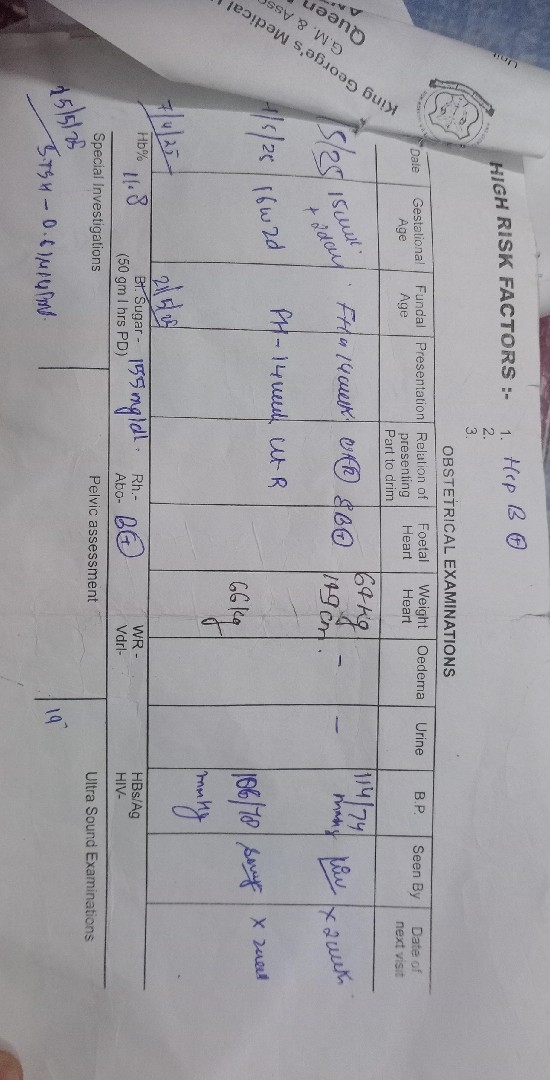 King George's Medical
G.M. & Asso
Queen
HIGH RISK FACTORS :- 1. Hep B ⊕
2.
3.
OBSTETRICAL EXAMINATIONS
Date Gestational Age Fundal Age Presentation Relation of presenting Part to drim Foetal Heart Weight Heart Oedema Urine B.P. Seen By Date of next visit
5/25 15week + 2day 14week 64kg 149cm. - - 114/74 mmhg x 2week
/5/25 16w2d 14week ut R 66kg 106/70 mmhg x 2week
7/4/25 2/5/25
Hb% 11.8 Bt. Sugar - 155mg/dl. Rh.- B⊕ WR - HBs/Ag
(50 gm I hrs PD) Abo- Vdrl- HIV-
Special Investigations Pelvic assessment Ultra Sound Examinations